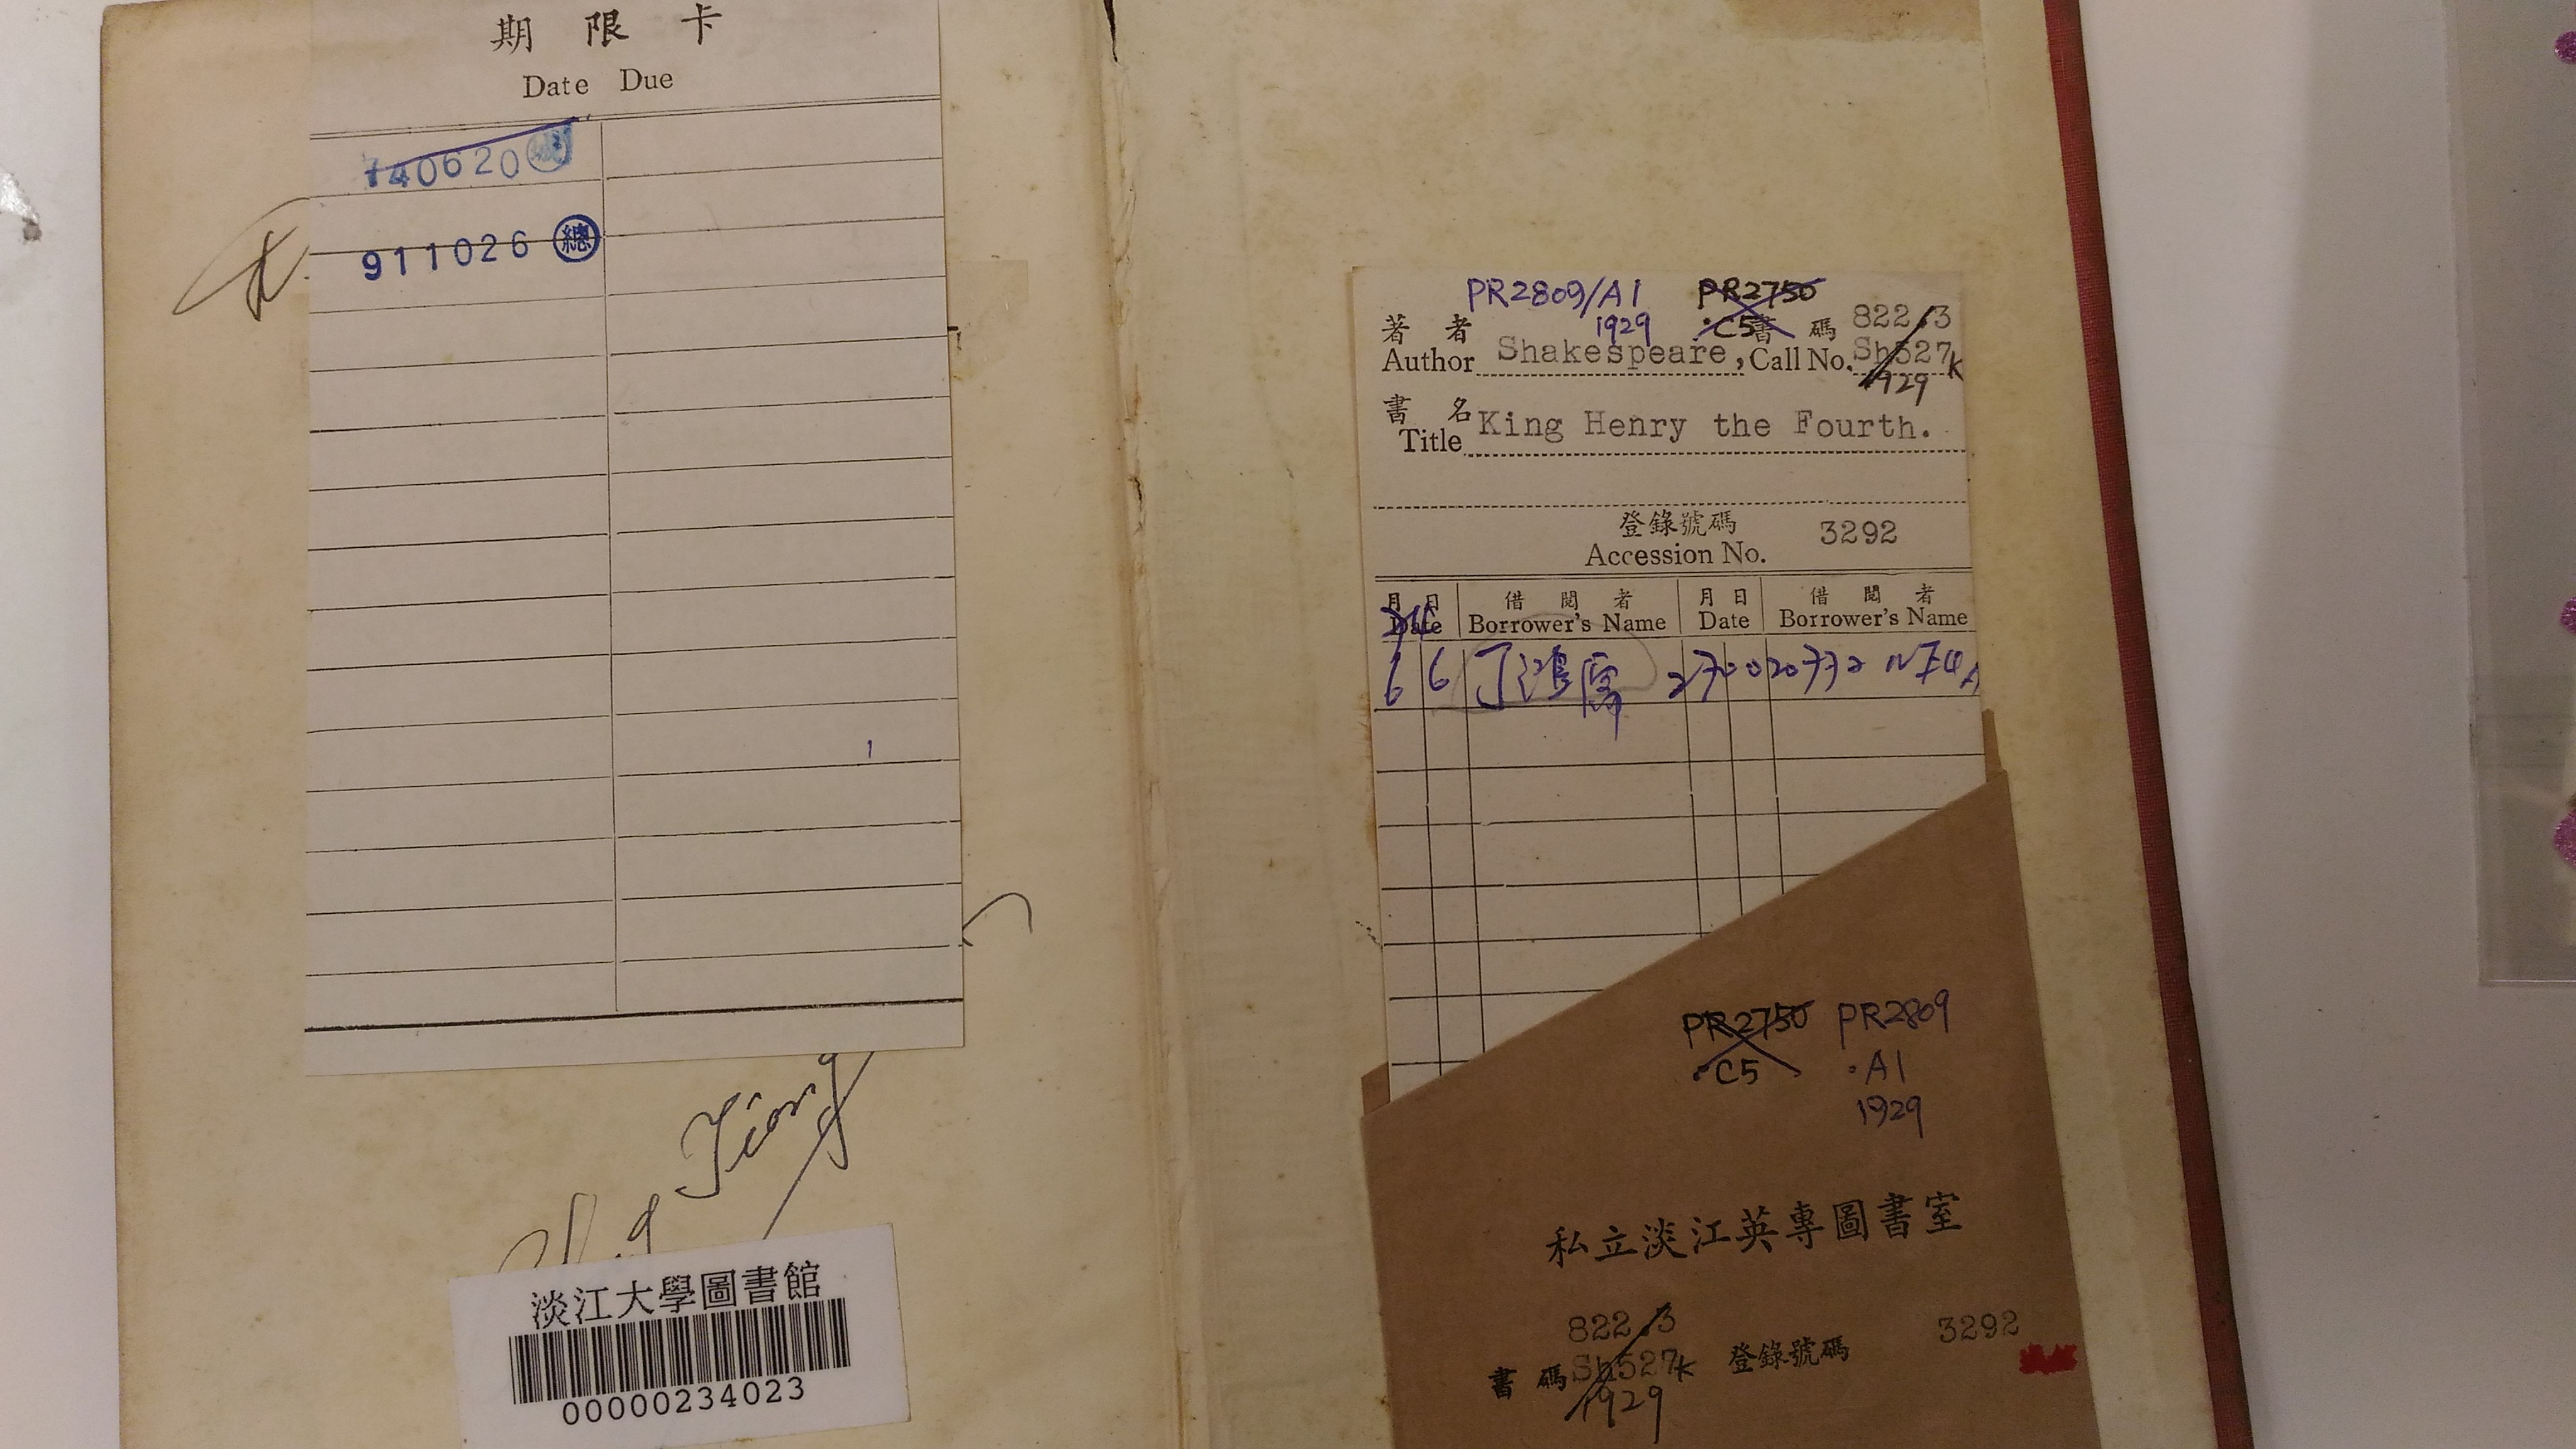 期限卡
Date Due
740620
911026 總
淡江大學圖書館
00000234023
PR2809/A1 PR2750
1929 .C5
著者 書碼 822.3
Author Shakespeare, Call No. Sh527k
1929
書名
Title King Henry the Fourth.
登錄號碼 3292
Accession No.
月日 借閱者 月日 借閱者
Date Borrower's Name Date Borrower's Name
6 6
PR2750 PR2809
.C5 .A1
1929
私立淡江英專圖書室
822.3 3292
書碼 Sh527k 登錄號碼
1929